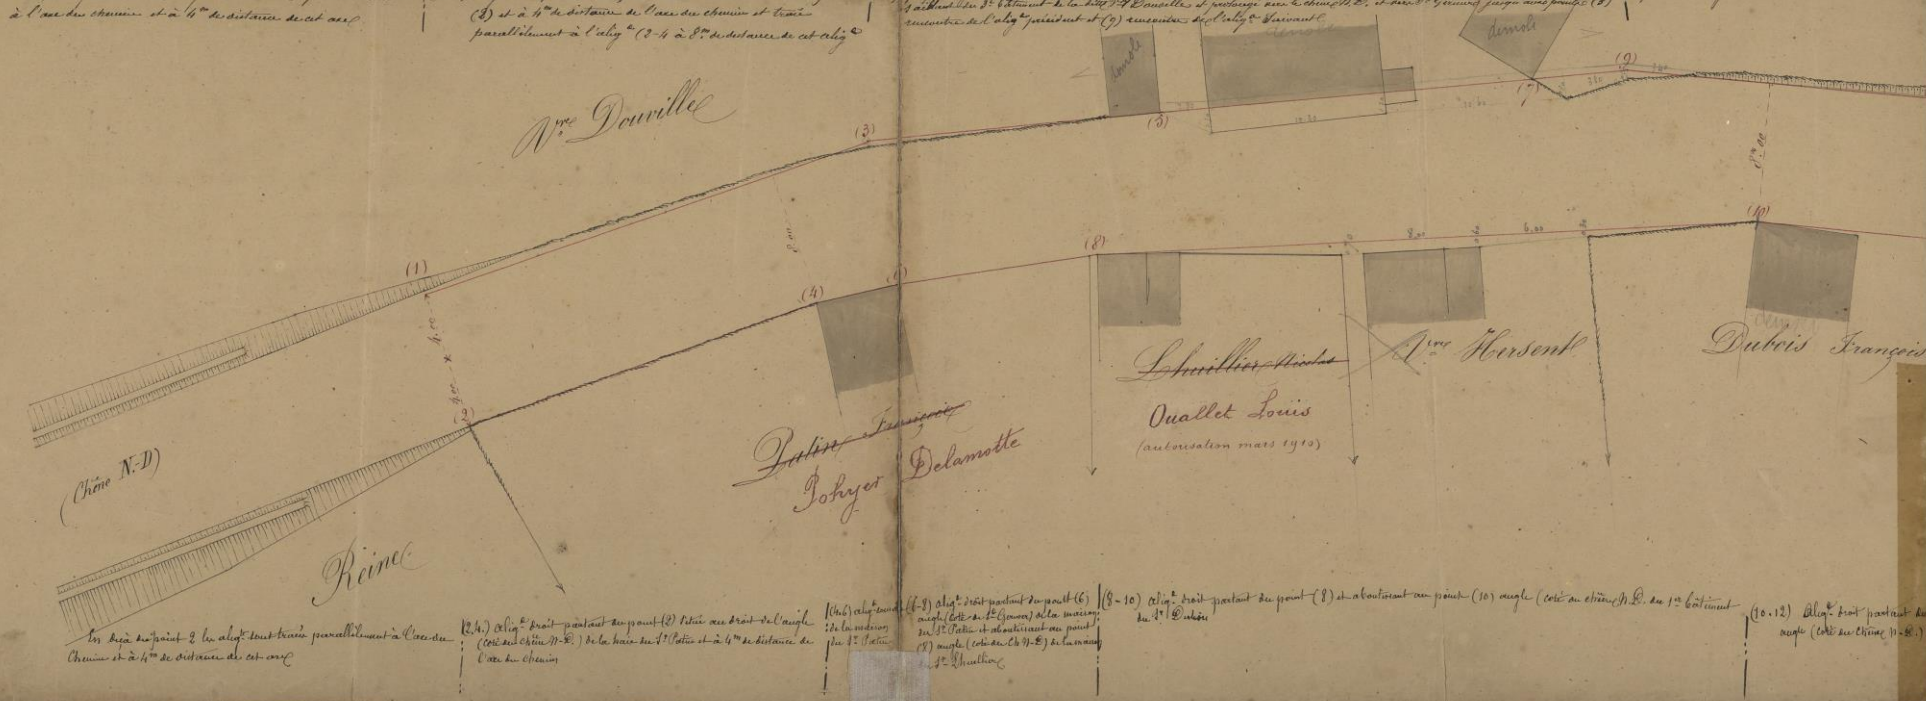 à l'axe du chemin et à 4m de distance de cet axe
(2) et à 4m de distance de l'axe du chemin et tracé
parallèlement à l'aligt (2-4 à 8m de distance de cet aligt
rencontre de l'aligt précédent et (9) rencontre de l'aligt suivant
démoli
démoli
démoli
Vve Douville
(1)
(3)
(5)
(7)
(9)
8m 00
8.00
4.00 x 4.00
(2)
(4)
(6)
(8)
8.00
6.00
(10)
démoli
Lhuillier Nicolas
Ouallet Louis
(autorisation mars 1910)
Vve Hersent
Dubois François
Patin François
Pohyer Delamotte
(Chêne N-D)
Reine
En deça du point 2 les aligts sont tracés parallèlement à l'axe du
Chemin et à 4m de distance de cet axe
(2.4.) Aligt droit partant du point (2) situé au droit de l'angle
(coté du Chêne N-D.) de la haie du Sr Patin et à 4m de distance de
l'axe du chemin
(4.6) aligt
de la maison
du Sr Patin
(6-8) aligt droit partant du point (6)
angle (coté de St ) de la maison
du Sr Patin et aboutissant au point
(8) angle (coté du Ch N-D) de la maison
du Sr Lhuillier
(8-10) aligt droit partant du point (8) et aboutissant au point (10) angle (coté du chêne N.D. du 1er bâtiment
du Sr Dubois
(10.12) Aligt droit partant du
angle (coté du Chêne N-D.)